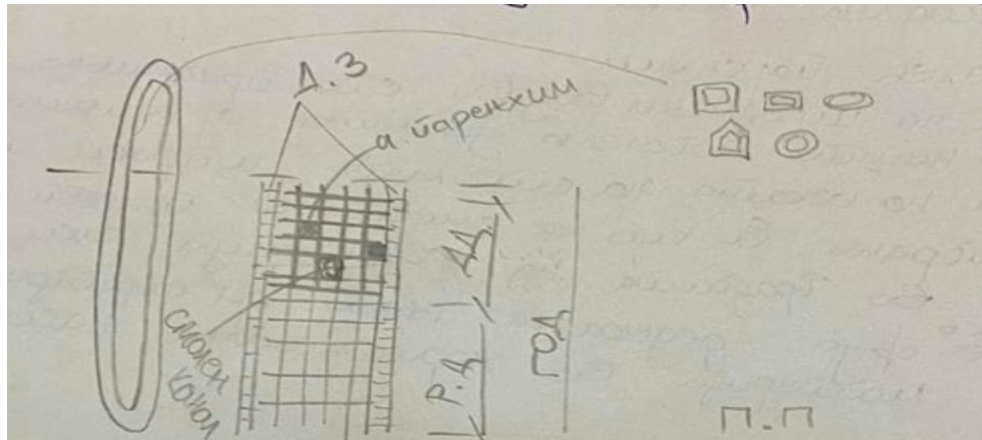 Д.З
а. паренхим
смолен
канал
Д.Д.
Р.Д
ГОД
П.П